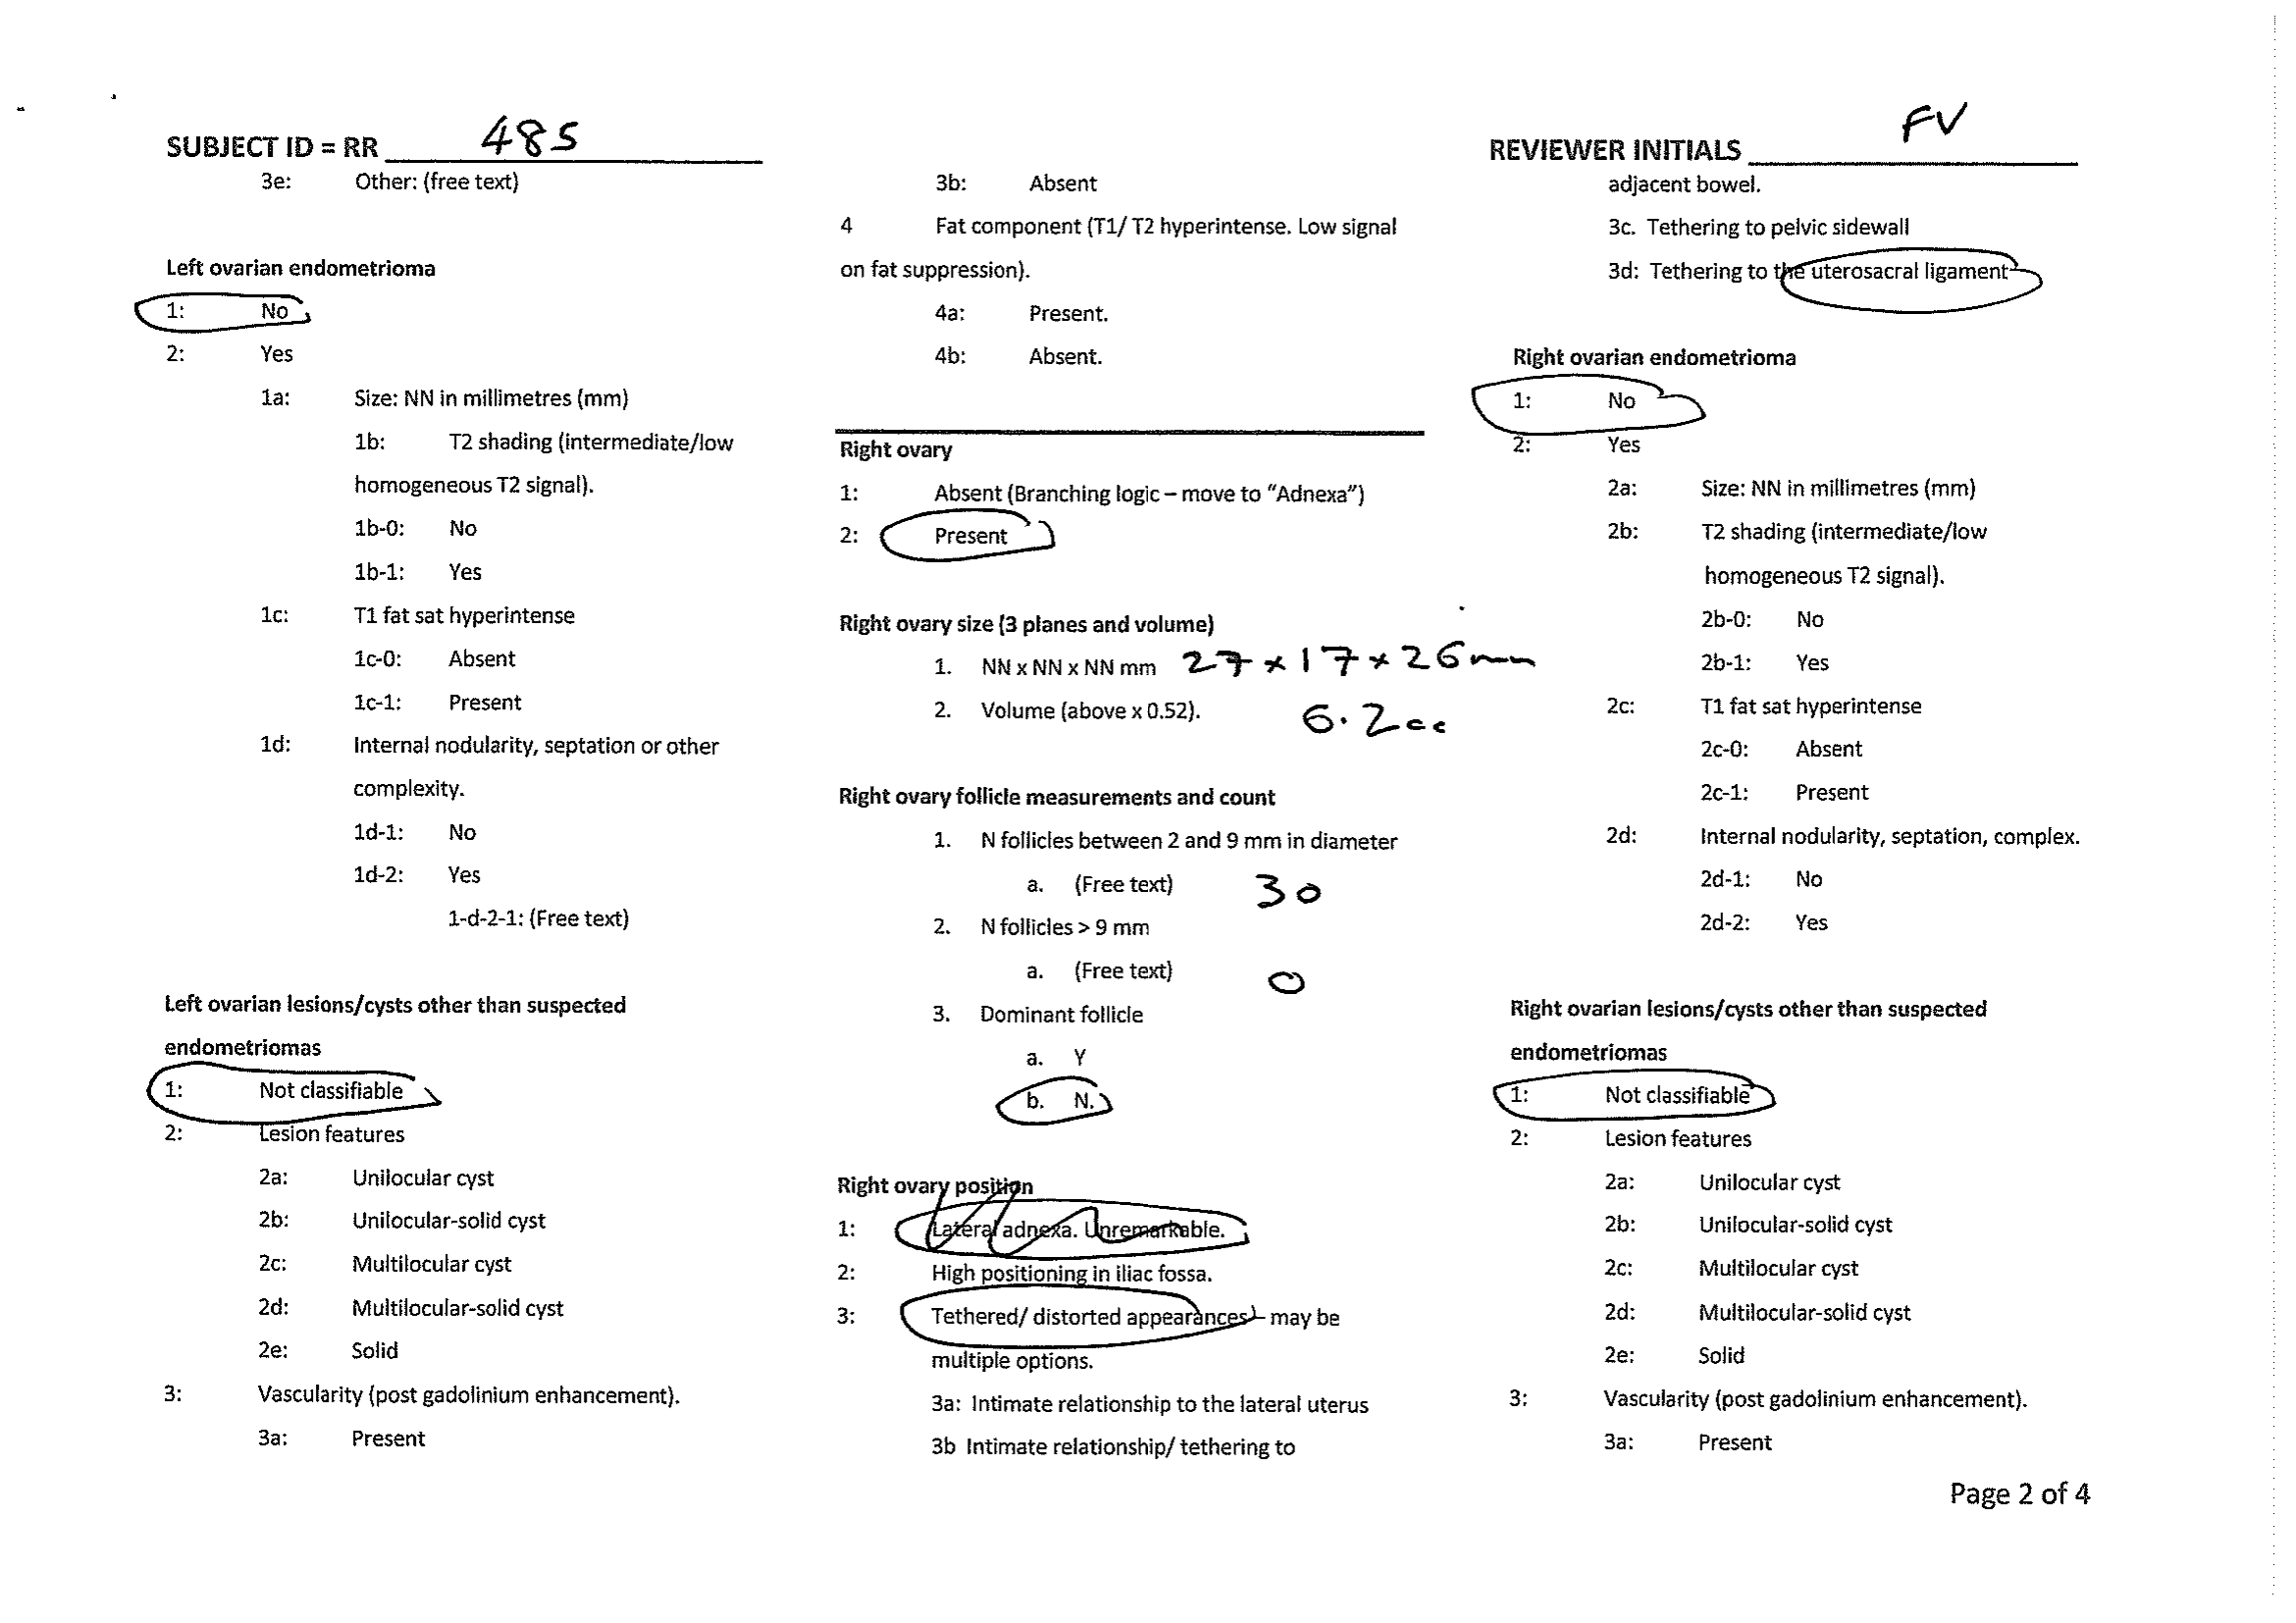 SUBJECT ID = RR 485
3e: Other: (free text)
Left ovarian endometrioma
1: No
2: Yes
1a: Size: NN in millimetres (mm)
1b: T2 shading (intermediate/low
homogeneous T2 signal).
1b-0: No
1b-1: Yes
1c: T1 fat sat hyperintense
1c-0: Absent
1c-1: Present
1d: Internal nodularity, septation or other
complexity.
1d-1: No
1d-2: Yes
1-d-2-1: (Free text)
Left ovarian lesions/cysts other than suspected
endometriomas
1: Not classifiable
2: Lesion features
2a: Unilocular cyst
2b: Unilocular-solid cyst
2c: Multilocular cyst
2d: Multilocular-solid cyst
2e: Solid
3: Vascularity (post gadolinium enhancement).
3a: Present
3b: Absent
4 Fat component (T1/ T2 hyperintense. Low signal
on fat suppression).
4a: Present.
4b: Absent.
Right ovary
1: Absent (Branching logic – move to “Adnexa”)
2: Present
Right ovary size (3 planes and volume)
1. NN x NN x NN mm 27 x 17 x 26mm
2. Volume (above x 0.52). 6.2cc
Right ovary follicle measurements and count
1. N follicles between 2 and 9 mm in diameter
a. (Free text) 30
2. N follicles > 9 mm
a. (Free text) 0
3. Dominant follicle
a. Y
b. N.
Right ovary position
1: Lateral adnexa. Unremarkable.
2: High positioning in iliac fossa.
3: Tethered/ distorted appearances – may be
multiple options.
3a: Intimate relationship to the lateral uterus
3b Intimate relationship/ tethering to
REVIEWER INITIALS FV
adjacent bowel.
3c. Tethering to pelvic sidewall
3d: Tethering to the uterosacral ligament
Right ovarian endometrioma
1: No
2: Yes
2a: Size: NN in millimetres (mm)
2b: T2 shading (intermediate/low
homogeneous T2 signal).
2b-0: No
2b-1: Yes
2c: T1 fat sat hyperintense
2c-0: Absent
2c-1: Present
2d: Internal nodularity, septation, complex.
2d-1: No
2d-2: Yes
Right ovarian lesions/cysts other than suspected
endometriomas
1: Not classifiable
2: Lesion features
2a: Unilocular cyst
2b: Unilocular-solid cyst
2c: Multilocular cyst
2d: Multilocular-solid cyst
2e: Solid
3: Vascularity (post gadolinium enhancement).
3a: Present
Page 2 of 4